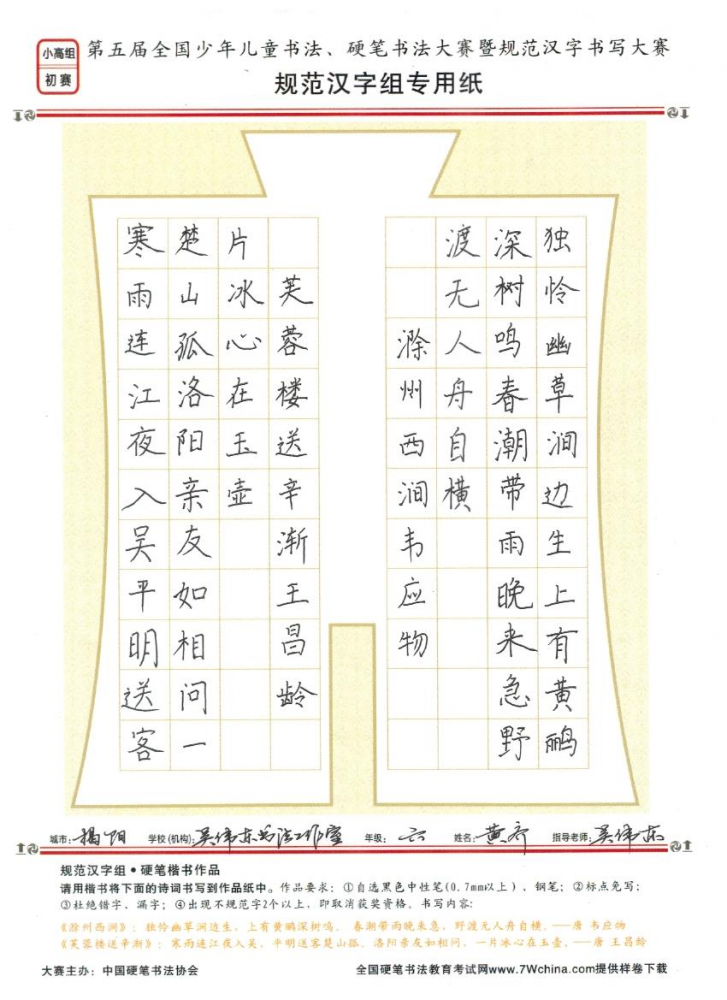 小高组
初赛
第五届全国少年儿童书法、硬笔书法大赛暨规范汉字书写大赛
规范汉字组专用纸
独怜幽草涧边生上有黄鹂
深树鸣春潮带雨晚来急野
渡无人舟自横
滁州西涧韦应物
寒雨连江夜入吴平明送客
楚山孤洛阳亲友如相问一
片冰心在玉壶
芙蓉楼送辛渐王昌龄
城市：揭阳 学校(机构)：吴伟东书法工作室 年级：六 姓名：黄 指导老师：吴伟东
规范汉字组•硬笔楷书作品
请用楷书将下面的诗词书写到作品纸中。作品要求：①自选黑色中性笔(0.7mm以上)、钢笔；②标点免写；
③杜绝错字、漏字；④出现不规范字2个以上，即取消获奖资格。书写内容：
《滁州西涧》：独怜幽草涧边生，上有黄鹂深树鸣。 春潮带雨晚来急，野渡无人舟自横。——唐 韦应物
《芙蓉楼送辛渐》：寒雨连江夜入吴，平明送客楚山孤。洛阳亲友如相问，一片冰心在玉壶。——唐 王昌龄
大赛主办：中国硬笔书法协会
全国硬笔书法教育考试网www.7Wchina.com提供样卷下载